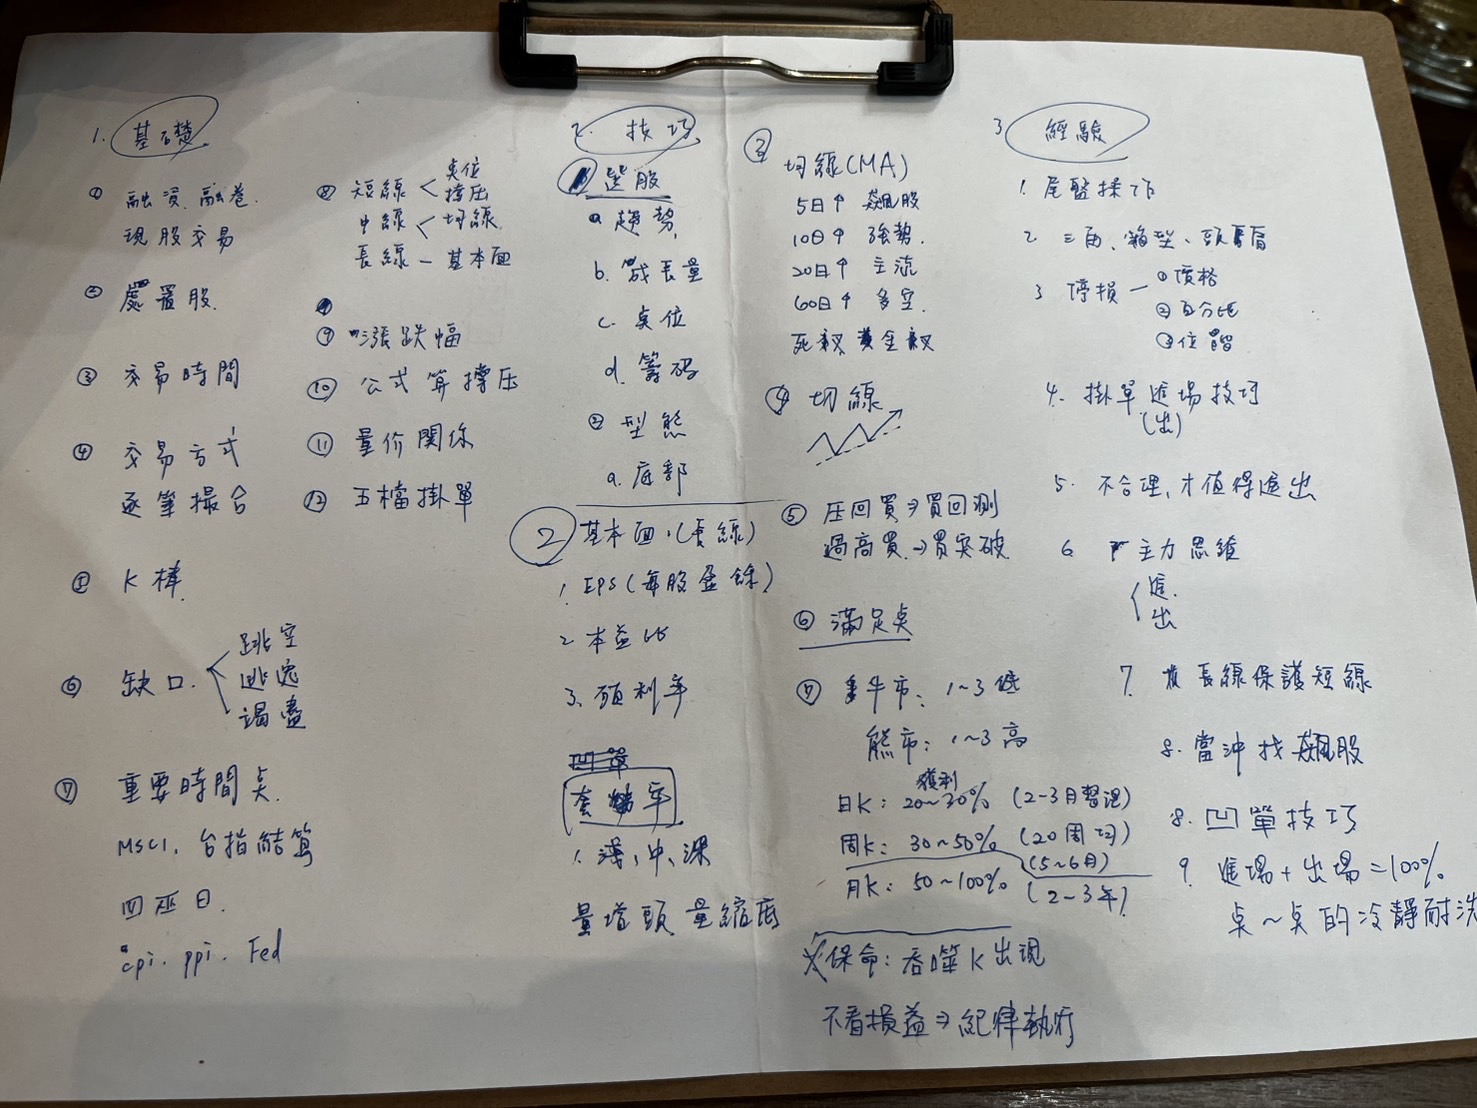 1. 基礎
① 融資、融卷、
現股交易
② 處置股
③ 交易時間
④ 交易方式
逐筆撮合
⑤ K棒
⑥ 缺口
跳空
逃逸
竭盡
⑦ 重要時間点
MSCI、台指結算
四巫日
cpi. ppi. Fed
⑧ 短線
点位
撐压
中線
切線
長線 — 基本面
⑨ 漲跌幅
⑩ 公式算撐压
⑪ 量价関係
⑫ 五檔掛單
2. 技巧
① 選股
a. 趨勢
b. 成長量
c. 点位
d. 籌码
② 型態
a. 底部
② 基本面、(長線)
1. EPS (每股盈餘)
2 本益比
3. 殖利率
凹單
套牢
1. 淺、中、深
量增頭 量縮底
③
均線(MA)
5日↑ 飆股
10日↑ 強勢
20日↑ 主流
60日↑ 多空
死叉 黃金叉
④ 切線
⑤ 压回買⇒買回測
過高買→買突破
⑥ 滿足点
⑦ 牛市: 1~3 低
熊市: 1~3 高
獲利
日K: 20~30% (2-3月整理)
周K: 30~50% (20周均)
(5~6月)
月K: 50~100% (2~3年)
保命: 吞噬K出現
不看損益⇒紀律執行
3 經驗
1. 尾盤操作
2 三角、箱型、頭肩
3 停損 — ① 價格
② 百分比
③ 位置
4. 掛單進場技巧
(出)
5. 不合理,才值得進出
6 主力思維
進
出
7. 長線保護短線
8. 當沖找飆股
8. 凹單技巧
9. 進場+出場=100%
点~点的冷靜耐洗